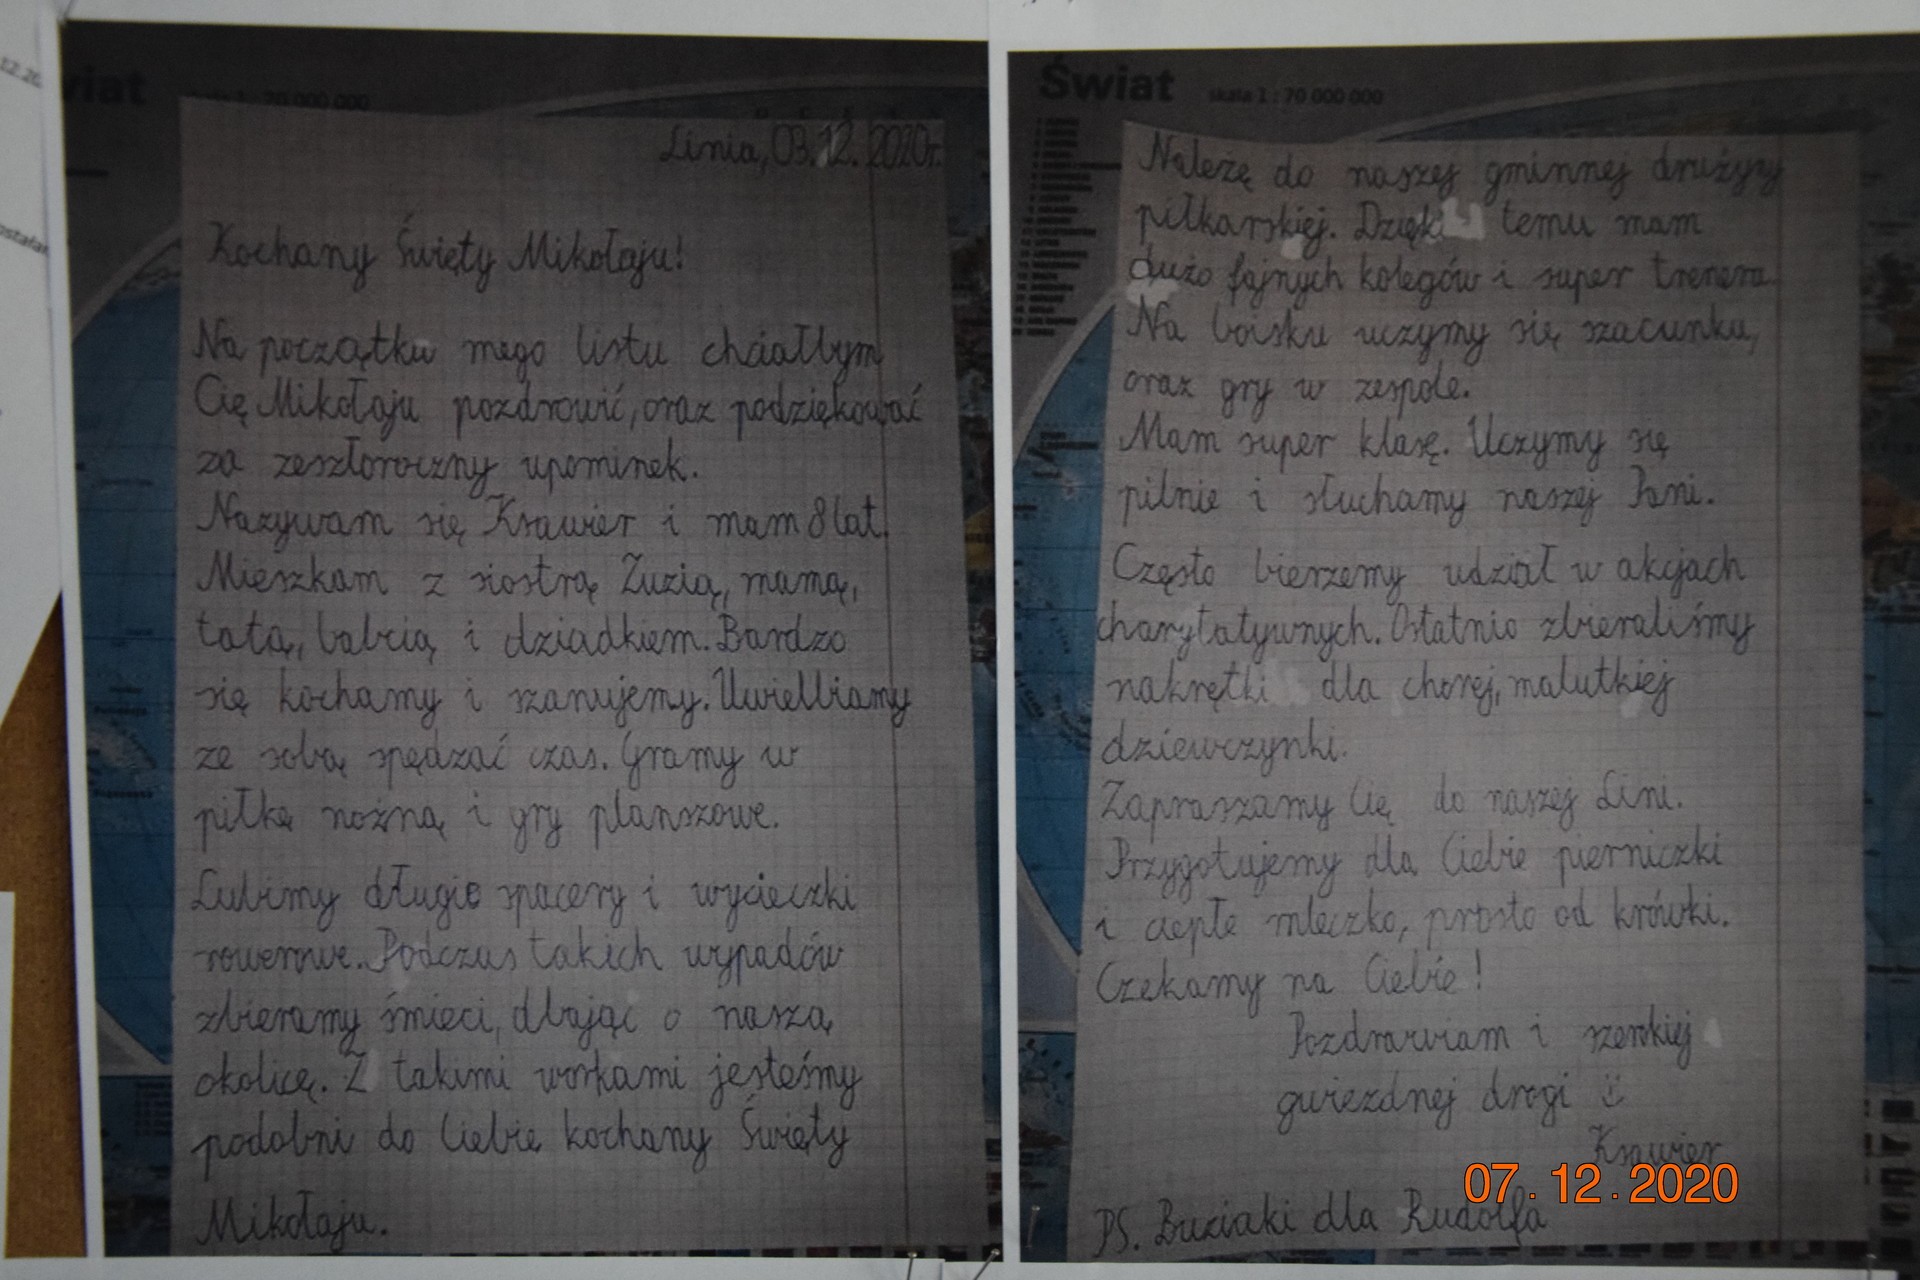 12.20
wiat
skala 1 : 70 000 000
Linia, 03.12.2020r.
Kochany Święty Mikołaju!
Na początku mego listu chciałbym
Cię Mikołaju pozdrowić, oraz podziękować
za zeszłoroczny upominek.
Nazywam się Ksawier i mam 8 lat.
Mieszkam z siostrą Zuzią, mamą,
tatą, babcią i dziadkiem. Bardzo
się kochamy i szanujemy. Uwielbiamy
ze sobą spędzać czas. Gramy w
piłkę nożną i gry planszowe.
Lubimy długie spacery i wycieczki
rowerowe. Podczas takich wypadów
zbieramy śmieci, dbając o naszą
okolicę. Z takimi workami jesteśmy
podobni do Ciebie kochany Święty
Mikołaju.
Świat
skala 1 : 70 000 000
Należę do naszej gminnej drużyny
piłkarskiej. Dzięki temu mam
dużo fajnych kolegów i super trenera.
Na boisku uczymy się szacunku,
oraz gry w zespole.
Mam super klasę. Uczymy się
pilnie i słuchamy naszej Pani.
Często bierzemy udział w akcjach
charytatywnych. Ostatnio zbieraliśmy
nakrętki dla chorej, malutkiej
dziewczynki.
Zapraszamy Cię do naszej Lini.
Przygotujemy dla Ciebie pierniczki
i ciepłe mleczko, prosto od krówki.
Czekamy na Ciebie!
Pozdrawiam i szerokiej
gwiezdnej drogi
Ksawier
07.12.2020
PS. Buziaki dla Rudolfa